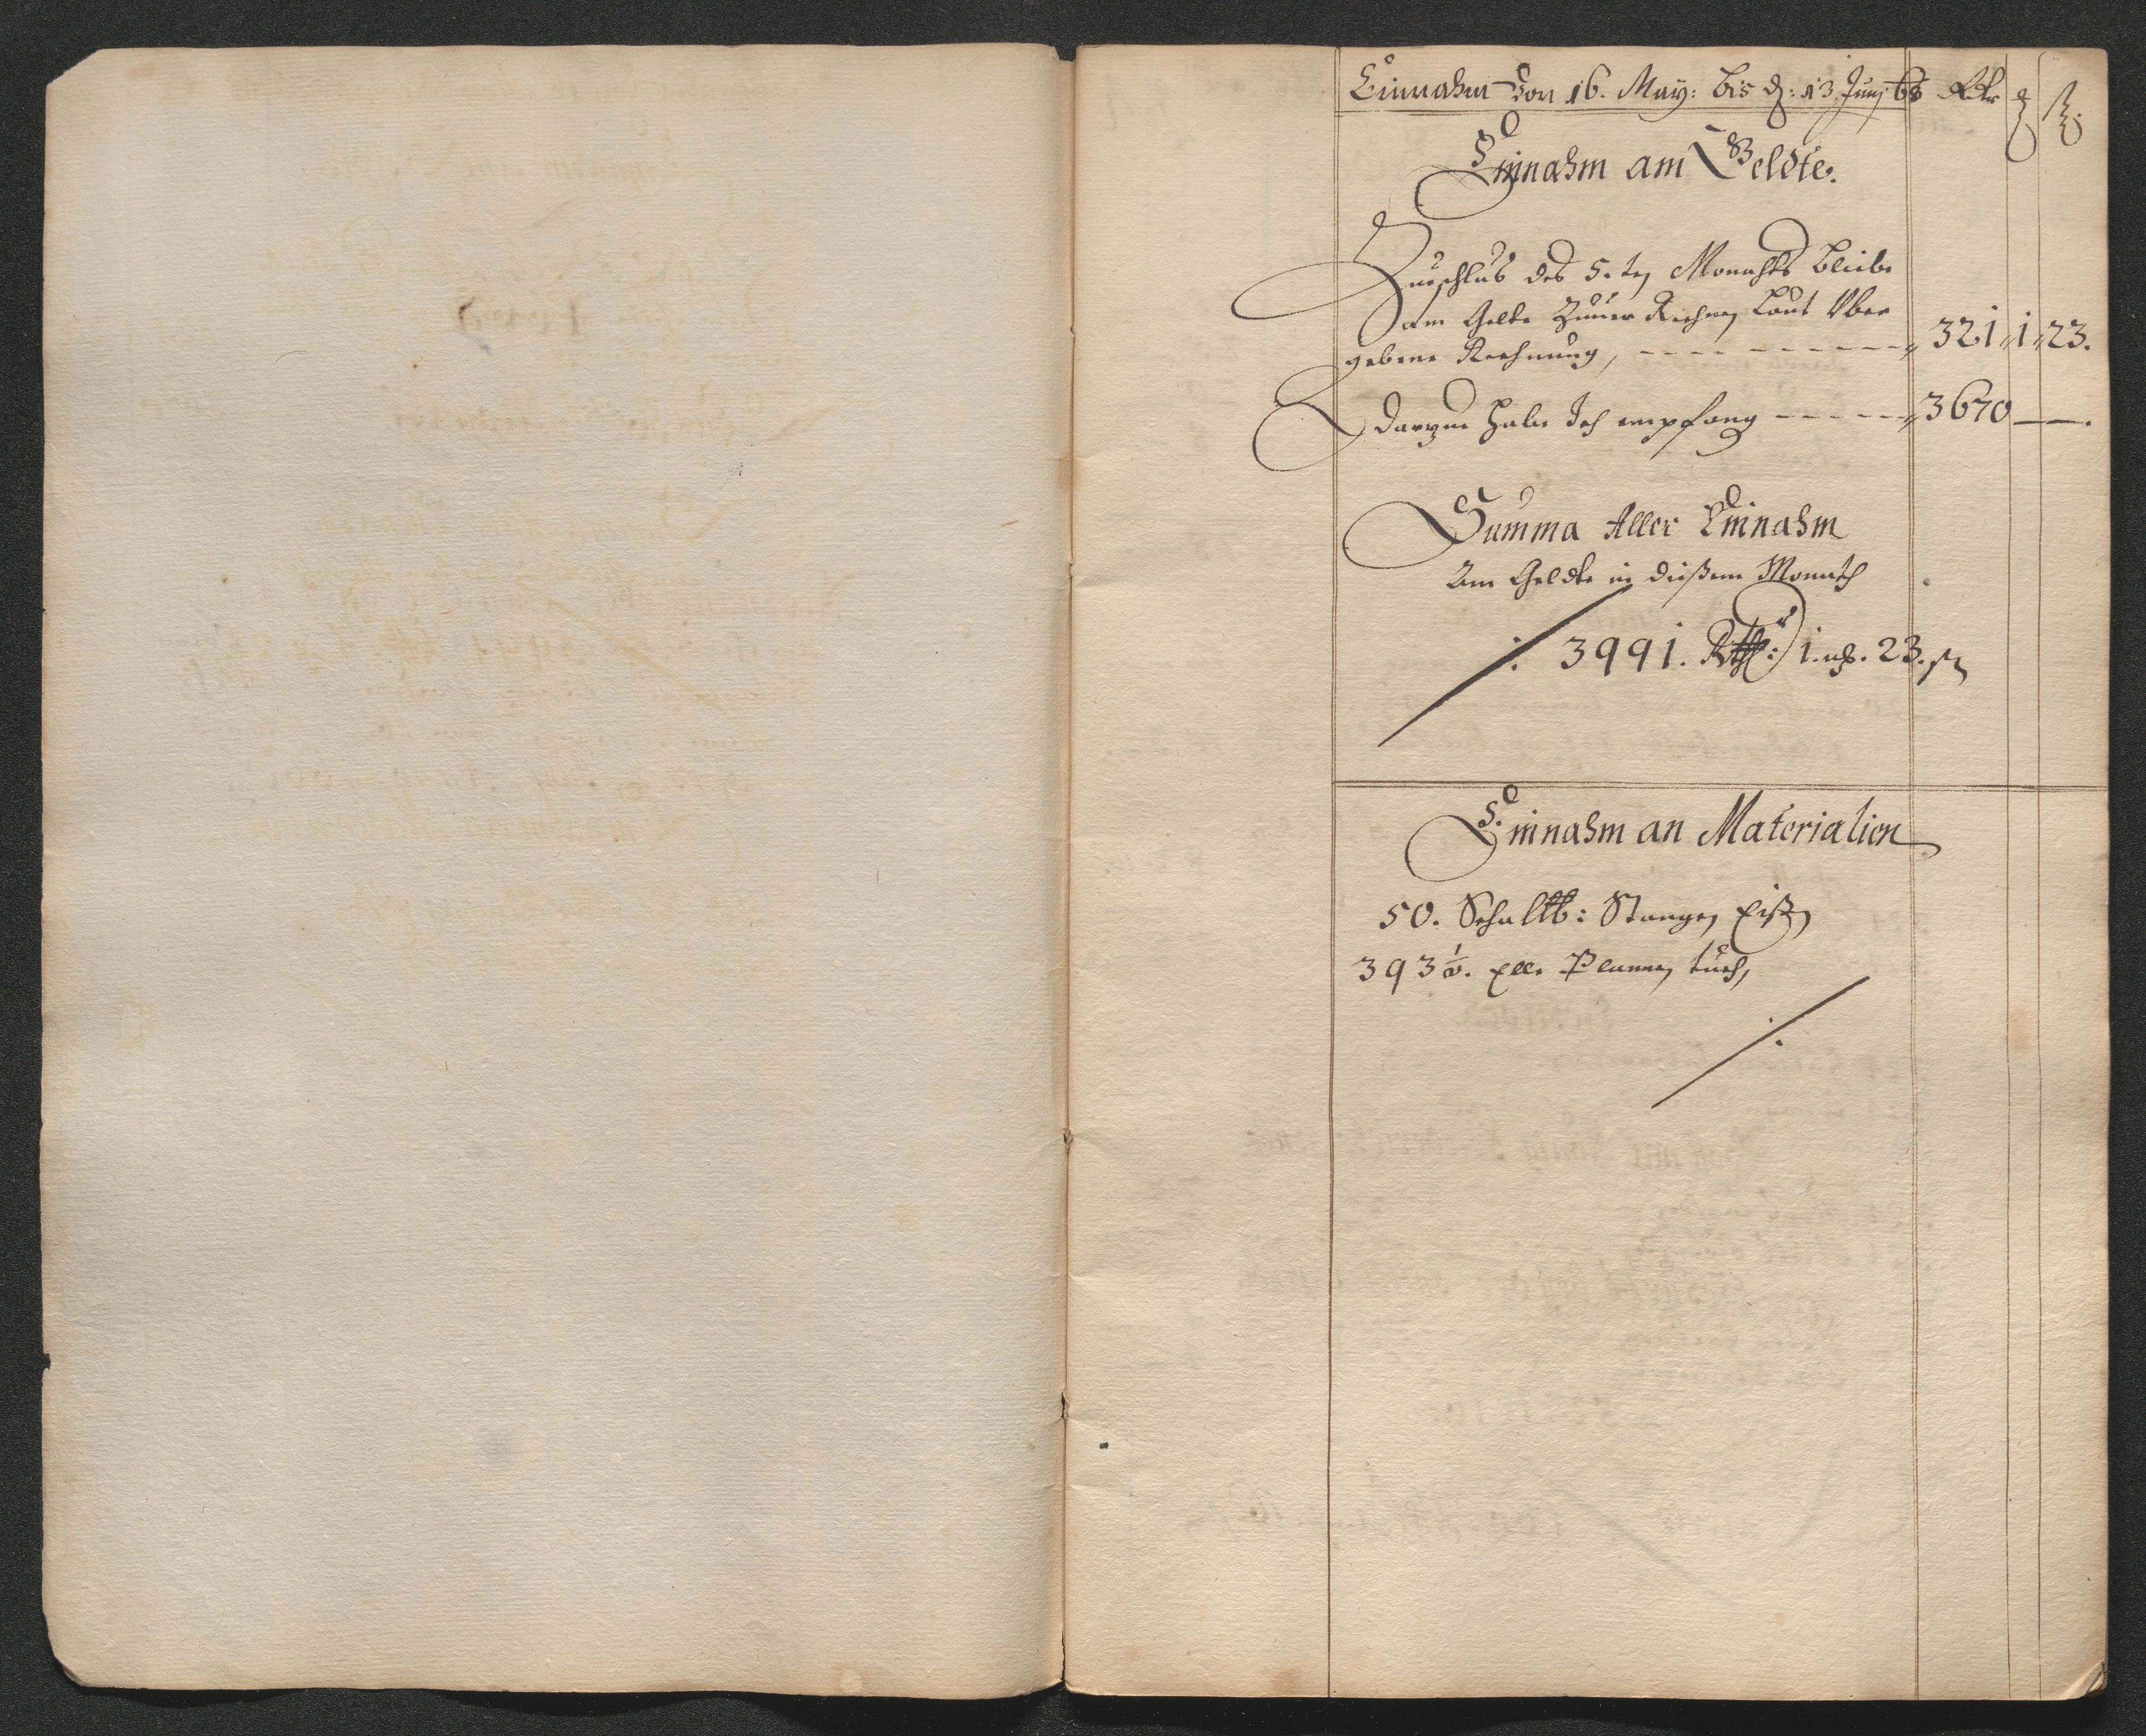 Einnahm von 16. May: bis d: 13 Junj 68 Rtr ß ₰.
Einnahm am Geldte.
Zuschlus des 5.ten Monahts bleibe
am Gelte Zuuer Rechnen Laut Vber
gebene Rechnung, 321 1 23.
Darzue habe Ich empfang 3670 — .
Summa Aller Einnahm
Am Geldte in dießem Monath
3991. Rthlr: 1. 23.
Einnahm an Materialien
50. Schaltb: Stangen Eißen
393 1/2. elle Plannen tuch,